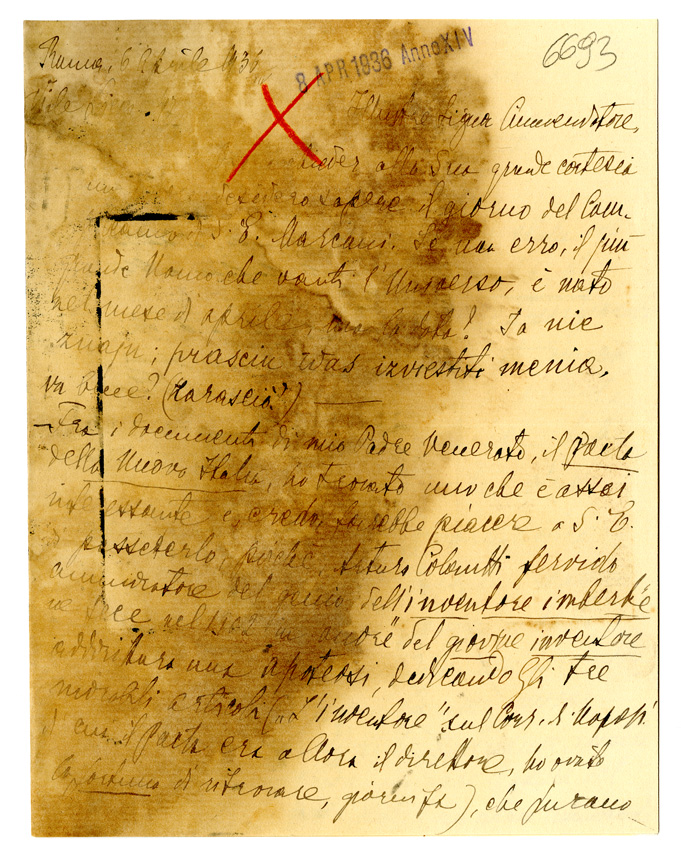 6693
8 APR 1936 Anno XIV
Roma, 6 Aprile 1936
Illustre Signor Commendatore,
alla Sua grande cortesia
desidero sapere il giorno del Com-
di S. E. Marconi. Se non erro, il più
grande Uomo che vanti l'Universo, è nato
nel mese di aprile, ma la data? Ia nie
znaju; prasciu was izviestiti menia,
va bene? (Karasciò?)
Fra i documenti di mio Padre Venerato, il Poeta
della Nuova Italia, ho trovato uno che è assai
interessante e, credo, farebbe piacere a S. E.
di possederlo, poiché, Arturo Colautti fervido
ammiratore del genio dell'inventore imberbe
ne fece nel del giovane inventore
addirittura una apoteosi, dedicando Gli tre
mirabili articoli („L'inventore" sul Corr. di Napoli
di cui il Poeta era allora il direttore, ho avuto
la fortuna di ritrovare, giorni fa), che furono